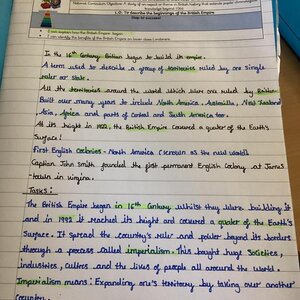 National Curriculum Objective: A study of an aspect or theme in British history that extends pupils' chronological knowledge beyond 1066
L.O: To describe the beginnings of the British Empire
Step to success!
I can explain how the British Empire began.
I can identify the benefits of the British Empire on lower class Londoners.
In the 16th Century Britain began to build its empire.
A term used to describe a group of territories ruled by one single
ruler or state.
All the territories around the world which were once ruled by Britain.
Built over many years to include North America, Australia, New Zealand
Asia, Africa and parts of Central and South America too.
At its height in 1922, the British Empire covered a quater of the Earth's
Surface!
First English Colonies - North America (known as the new world).
Captian John Smith founded the first permanent English Colony at James
town in virginia.
Tasks:
The British Empire began in 16th Century whilst they were building it
and in 1992 it reached its height and covered a quater of the Earth's
Surface. It spread the country's rule and power beyond its borders
through a process called imperialism. This bought huge Societies,
industries, cultres and the lives of people all around the world.
Imperialism means: Expanding one's territory by taking over another
Country.